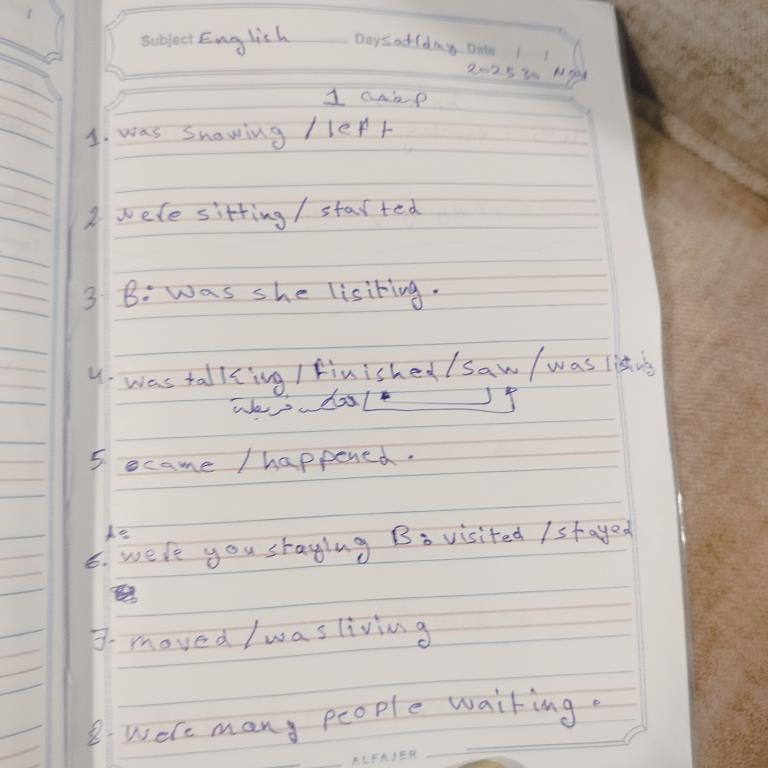 Subject English Day Satrday Date / /
2025 30 Nov
1
1. was snowing / left
2 were sitting / started
3. B: was she lisiting.
4. was talking / finished / saw / was listing
5 came / happened.
A:
6. were you staying B: visited / stayed
7- moved / was living
8- were many people waiting.
ALFAJER